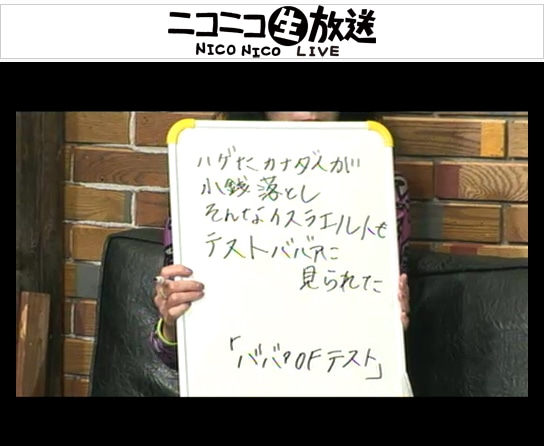 ニコニコ生放送
NICO NICO LIVE
ハゲたカナダ人が
小銭落とし
そんなイスラエル人も
テストババアに
見られた
「ババアOFテスト」